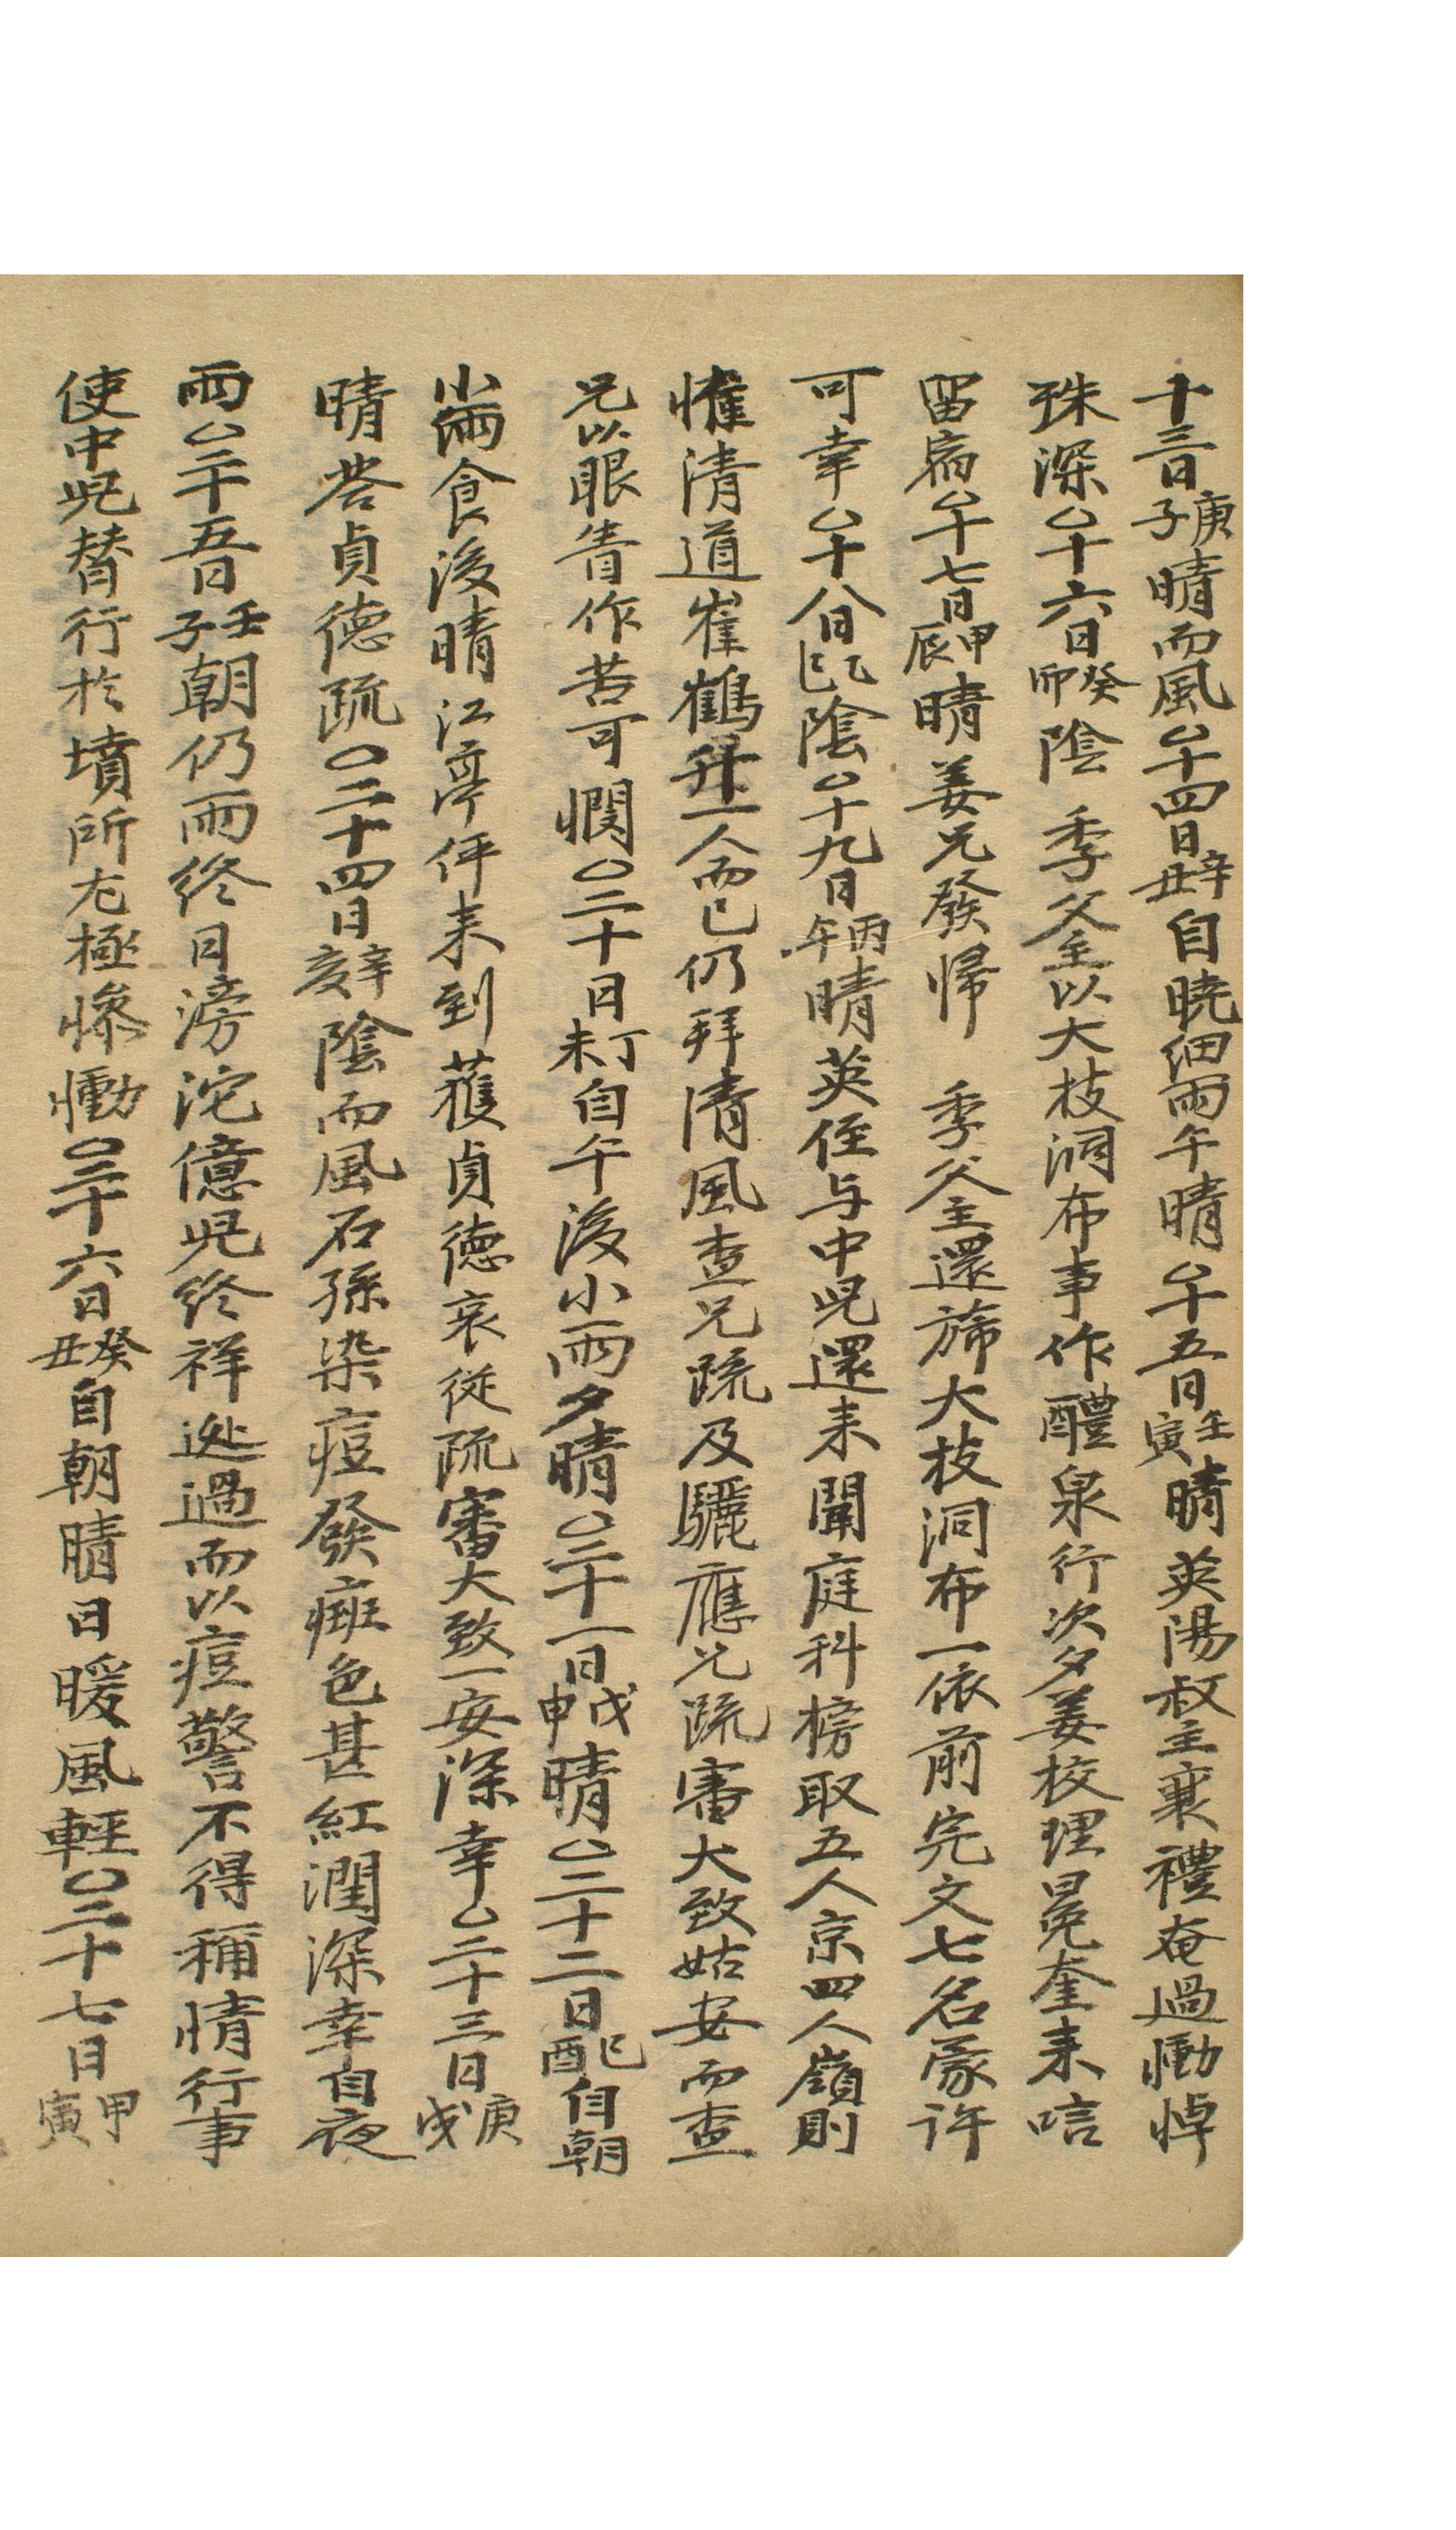 十三日庚子晴而風○十四日辛丑自曉細雨午晴○十五日壬寅晴英陽叔主襄禮奄過慟悼
殊深○十六日癸卯陰 季父主以大枝洞布事作醴泉行次夕姜校理冕奎來唁
留宿○十七日甲辰晴姜兄發歸 季父主還旆大枝洞布一依前完文七名蒙許
可幸○十八日乙巳陰○十九日丙午晴英侄与中児還来聞庭科榜取五人京四人嶺則
惟清道崔鶴升一人而已仍拜清風查兄疏及驪應兄疏審大致姑安而查
兄以眼眚作苦可憫○二十日丁未自午後小雨夕晴○二十一日戊申晴○二十二日己酉自朝
小雨食後晴江亭伻来到獲貞德哀從疏審大致一安深幸○二十三日庚戌
晴答貞德疏○二十四日辛亥陰而風石孫染痘發癍色甚紅潤深幸自夜
雨○二十五日壬子朝仍雨終日滂沱億児終祥逃過而以痘警不得稱情行事
使中児替行於墳所尤極慘慟○二十六日癸丑自朝晴日暖風輕○二十七日甲寅